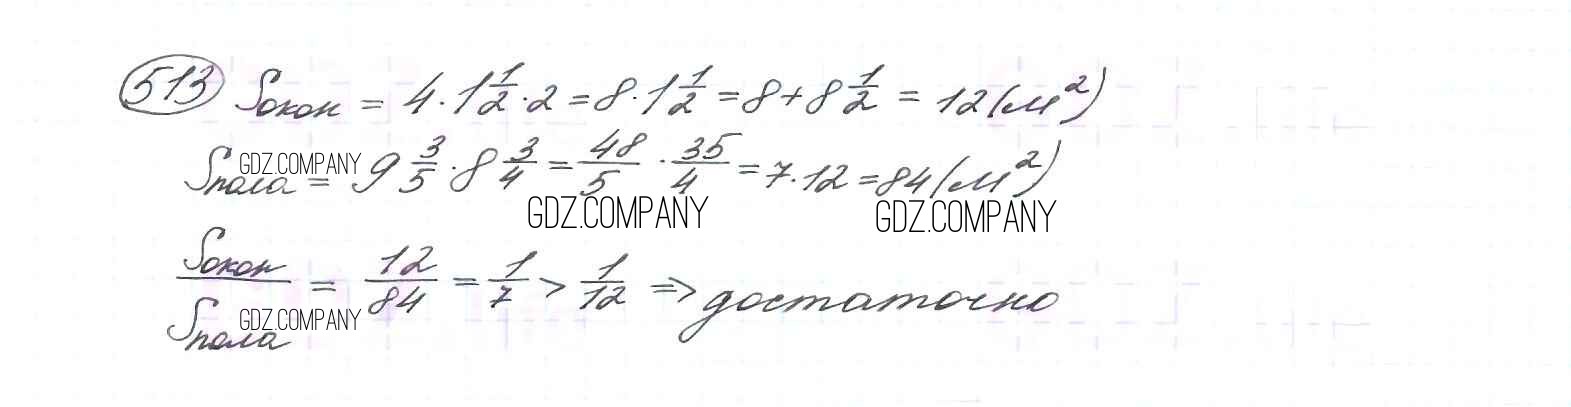 513 Sокон = 4 · 1 1/2 · 2 = 8 · 1 1/2 = 8 + 8 1/2 = 12 (м²)
Sпола = 9 3/5 · 8 3/4 = 48/5 · 35/4 = 7 · 12 = 84 (м²)
GDZ.COMPANY
GDZ.COMPANY GDZ.COMPANY
Sокон/Sпола = 12/84 = 1/7 > 1/12 => достаточно
GDZ.COMPANY